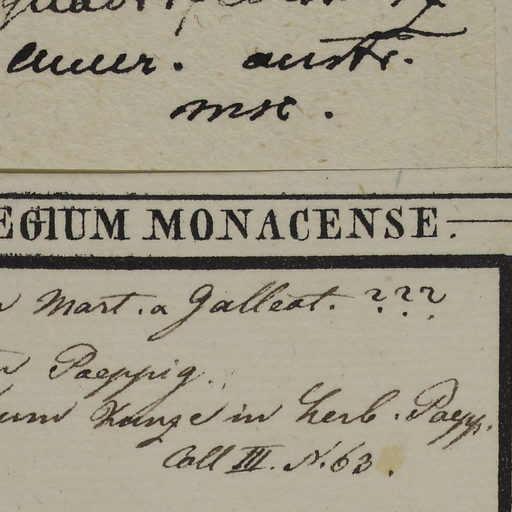 amer. austr.
mse.
EGIUM MONACENSE.
Mart. a Galleot. ???
Poeppig.
um Kunze in herb. Poepp.
Coll III. N. 63.